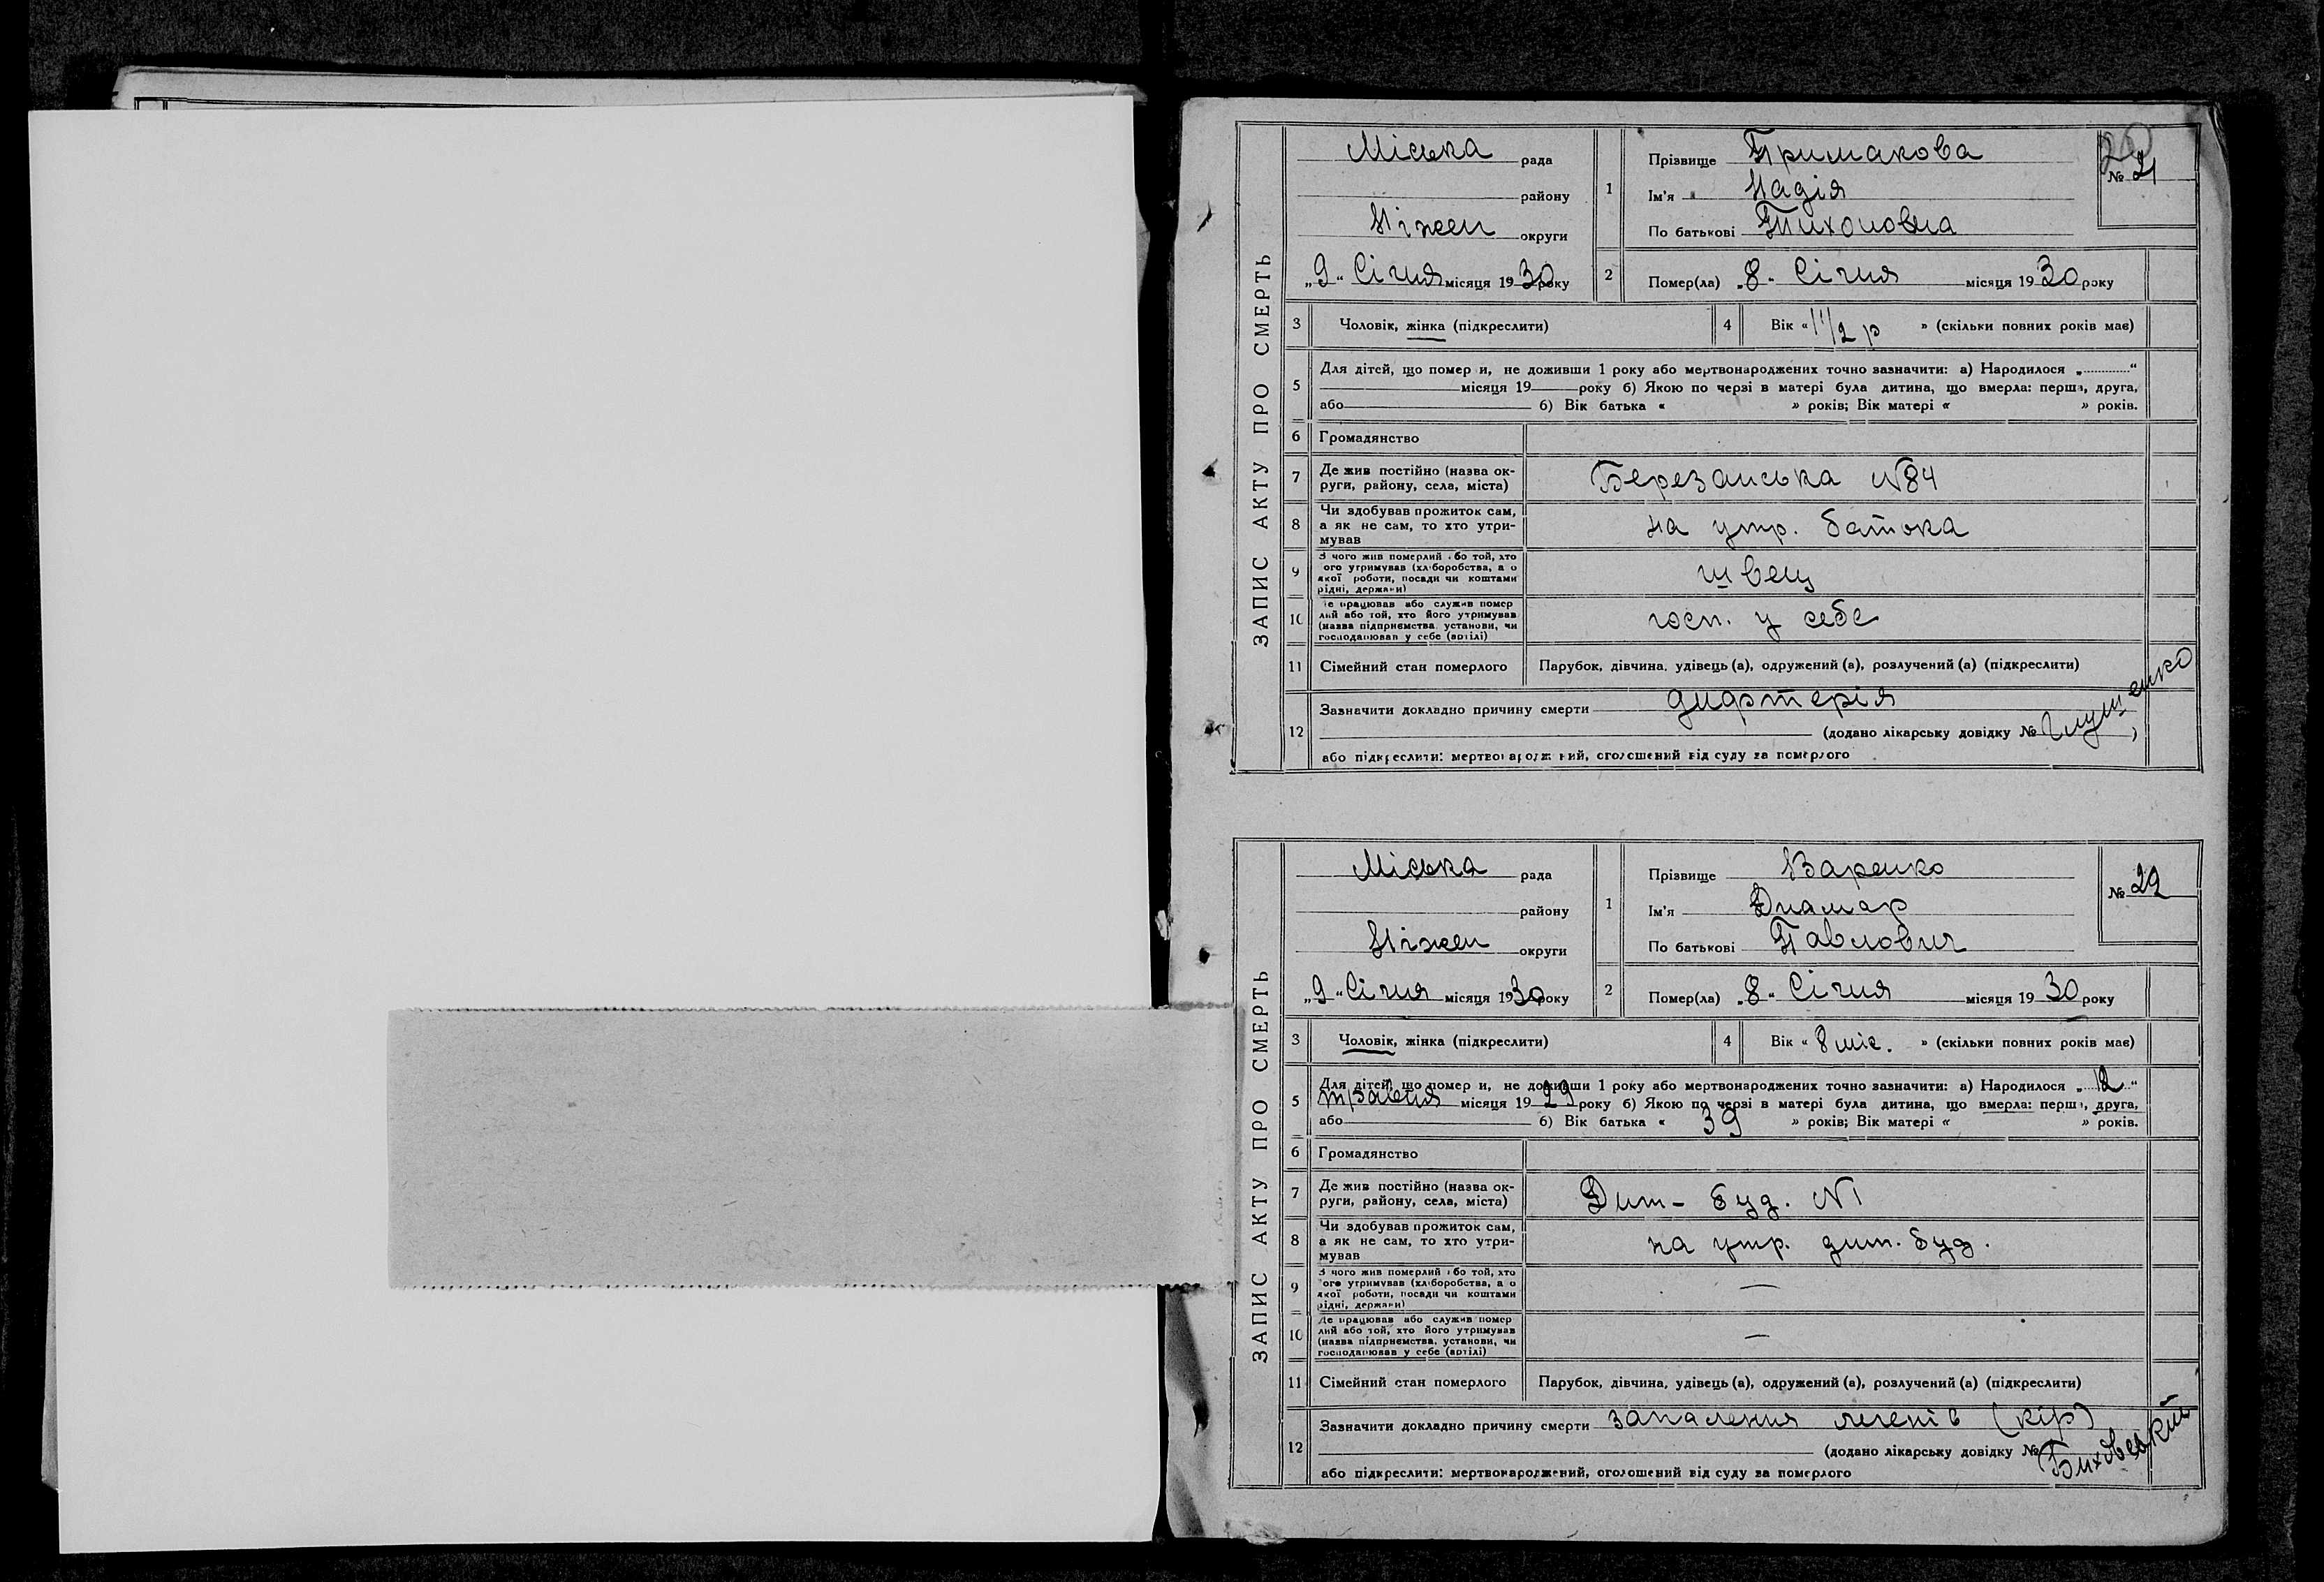 ЗАПИС АКТУ ПРО СМЕРТЬ
Міська рада
району
Ніжен округи
„9“ Січня місяця 1930 року
1 Прізвище Примакова
Ім'я Надія
По батькові Тихоновна
20
№ 21
2 Помер(ла) „8“ Січня місяця 1930 року
3 Чоловік, жінка (підкреслити)
4 Вік « 1 1/2 р » (скільки повних років має)
5 Для дітей, що помер и, не доживши 1 року або мертвонароджених точно зазначити: а) Народилося „..........“
місяця 19 року б) Якою по черзі в матері була дитина, що вмерла: перша, друга,
або б) Вік батька « » років; Вік матері « » років.
6 Громадянство
7 Де жив постійно (назва ок-
руги, району, села, міста) Березанська №84
8 Чи здобував прожиток сам,
а як не сам, то хто утри-
мував на утр. батька
9 З чого жив померлий або той, хто
ого утримував (хліборобства, а о
якої роботи, посади чи коштами
рідні, держави) швец
10 Де працював або служив помер
лий або той, хто його утримував
(назва підприємства, установи, чи
господарював у себе (артілі) госп. у себе
11 Сімейний стан померлого Парубок, дівчина, удівець (а), одружений (а), розлучений (а) (підкреслити)
12 Зазначити докладно причину смерти дифтерія
(додано лікарську довідку № Глущенко )
або підкреслити: мертвонароджений, оголошений від суду за померлого
ЗАПИС АКТУ ПРО СМЕРТЬ
Міська рада
району
Ніжен округи
„9“ Січня місяця 1930 року
1 Прізвище Варенко
Ім'я Диамар
По батькові Павлович
№ 22
2 Помер(ла) „8“ Січня місяця 1930 року
3 Чоловік, жінка (підкреслити)
4 Вік « 8 міс. » (скільки повних років має)
5 Для дітей, що помер и, не доживши 1 року або мертвонароджених точно зазначити: а) Народилося „12“
травня місяця 1929 року б) Якою по черзі в матері була дитина, що вмерла: перша, друга,
або б) Вік батька « 39 » років; Вік матері « » років.
6 Громадянство
7 Де жив постійно (назва ок-
руги, району, села, міста) Дит- буд. №1
8 Чи здобував прожиток сам,
а як не сам, то хто утри-
мував на утр. дит. буд.
9 З чого жив померлий або той, хто
ого утримував (хліборобства, а о
якої роботи, посади чи коштами
рідні, держави) —
10 Де працював або служив помер
лий або той, хто його утримував
(назва підприємства, установи, чи
господарював у себе (артілі) —
11 Сімейний стан померлого Парубок, дівчина, удівець (а), одружений (а), розлучений (а) (підкреслити)
12 Зазначити докладно причину смерти запалення легенів (кір)
(додано лікарську довідку № Биховецкий
або підкреслити: мертвонароджений, оголошений від суду за померлого